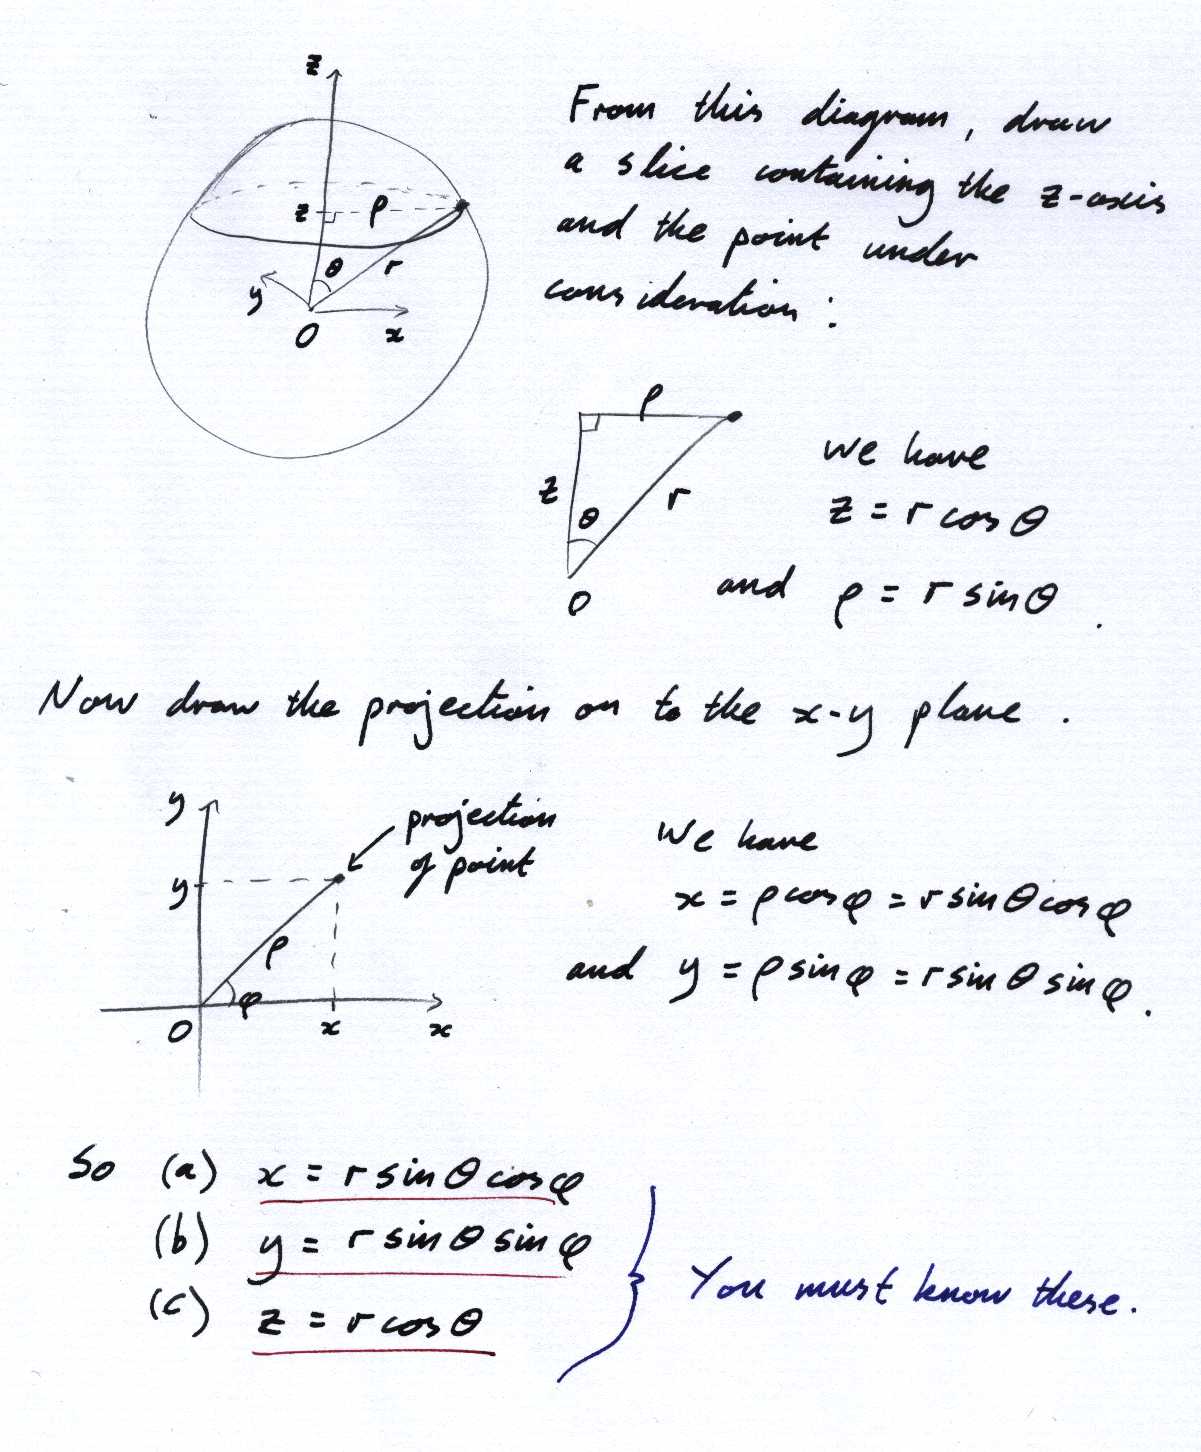 z
z ρ
θ r
y
O x
From this diagram, draw
a slice containing the z-axis
and the point under
consideration :
ρ
z θ r
O
We have
z = r cos θ
and ρ = r sin θ .
Now draw the projection on to the x-y plane .
y
projection
of point
y
ρ
φ
O x x
We have
x = ρ cos φ = r sin θ cos φ
and y = ρ sin φ = r sin θ sin φ .
So (a) x = r sin θ cos φ
(b) y = r sin θ sin φ
(c) z = r cos θ
You must know these.